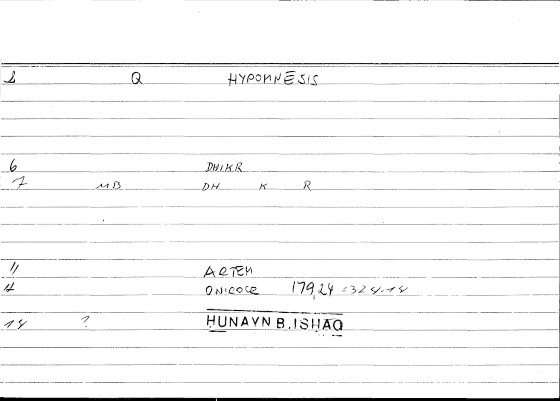 1 Q HYPOMNESIS
6 DHIKR
7 MB DH K R
11 ARTEM
12 ONIROCR 179,24 = 324.14
14 ? HUNAYN B. ISHAQ